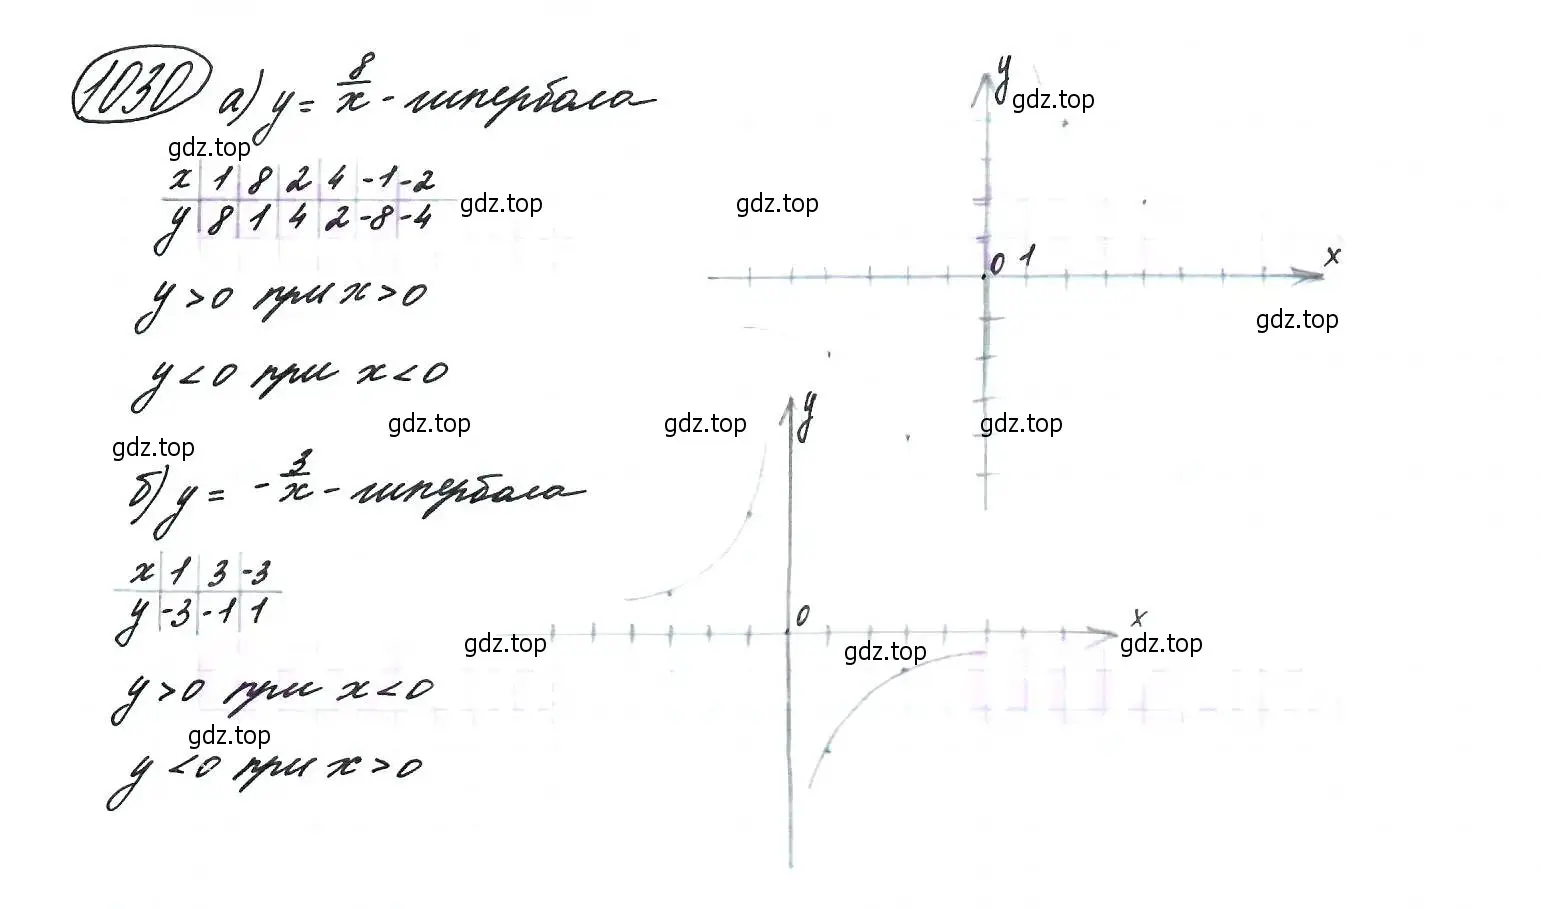 1030 а) y = 8/x - гипербола
gdz.top
gdz.top
x 1 8 2 4 -1 -2
y 8 1 4 2 -8 -4
gdz.top
gdz.top
y > 0 при x > 0
y < 0 при x < 0
gdz.top
gdz.top
gdz.top
gdz.top
б) y = - 3/x - гипербола
x 1 3 -3
y -3 -1 1
gdz.top
gdz.top
gdz.top
y > 0 при x < 0
gdz.top
y < 0 при x > 0
y
0 1
x
gdz.top
y
0
x